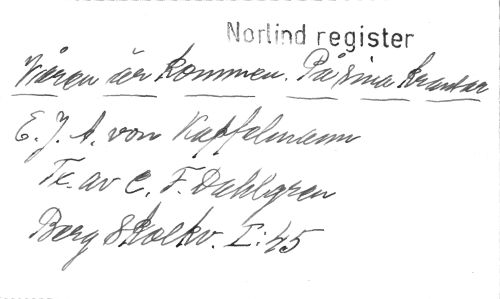 Norlind register
Våren är kommen. På sina krantar
E. J. A. von Kapfelmann
Tx. av C. F. Dahlgren
Berg Skolkv. I:45